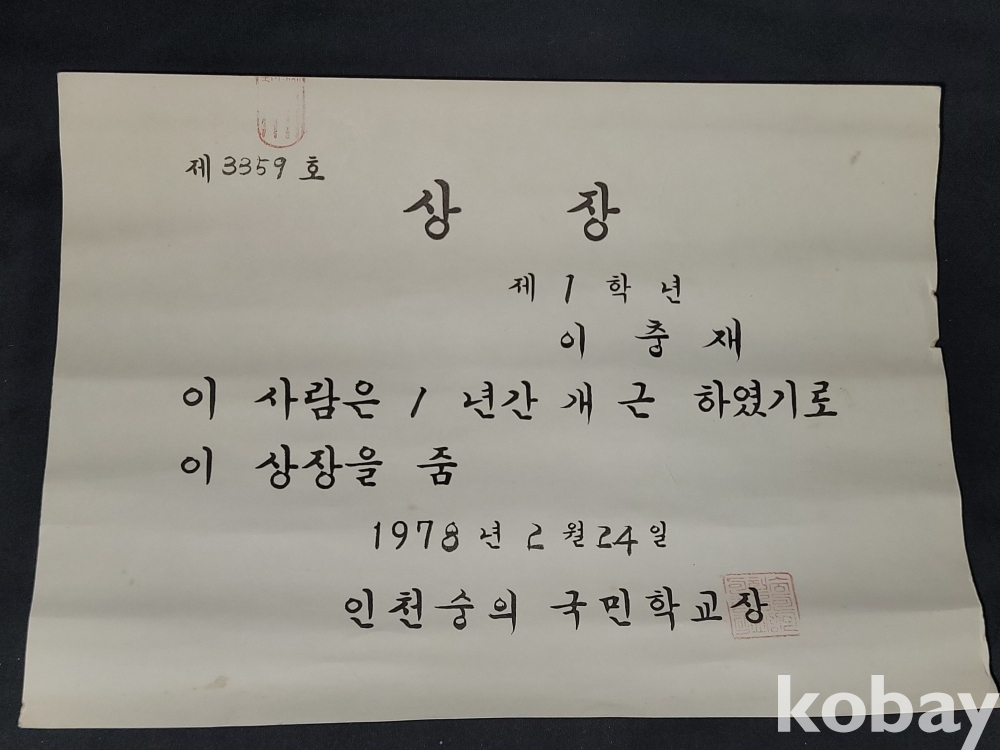 제 3359 호
상 장
제 1 학년
이 충 재
이 사람은 1 년간 개근 하였기로
이 상장을 줌
1978년 2월 24일
인천숭의 국민학교장
kobay